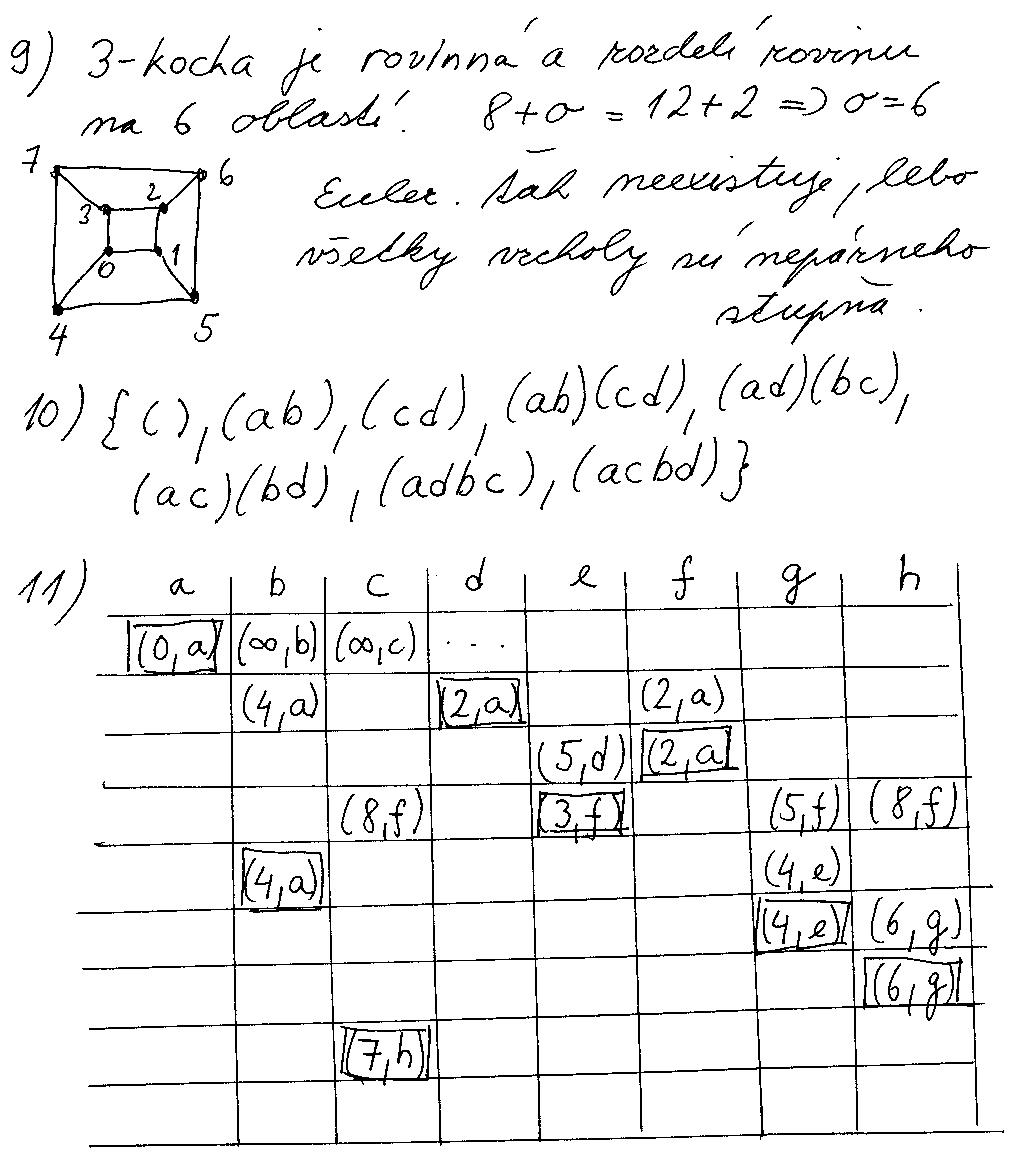 9) 3-kocka je rovinná a rozdelí rovinu
na 6 oblastí. 8+σ = 12+2 => σ=6
7 6
3 2
0 1
4 5
Euler. ťah neexistuje, lebo
všetky vrcholy sú nepárneho
stupňa.
10) { (), (ab), (cd), (ab)(cd), (ad)(bc),
(ac)(bd), (adbc), (acbd) }
11) a b c d e f g h
(0,a) (∞,b) (∞,c) ...
(4,a) (2,a) (2,a)
(5,d) (2,a)
(8,f) (3,f) (5,f) (8,f)
(4,a) (4,e)
(4,e) (6,g)
(6,g)
(7,h)